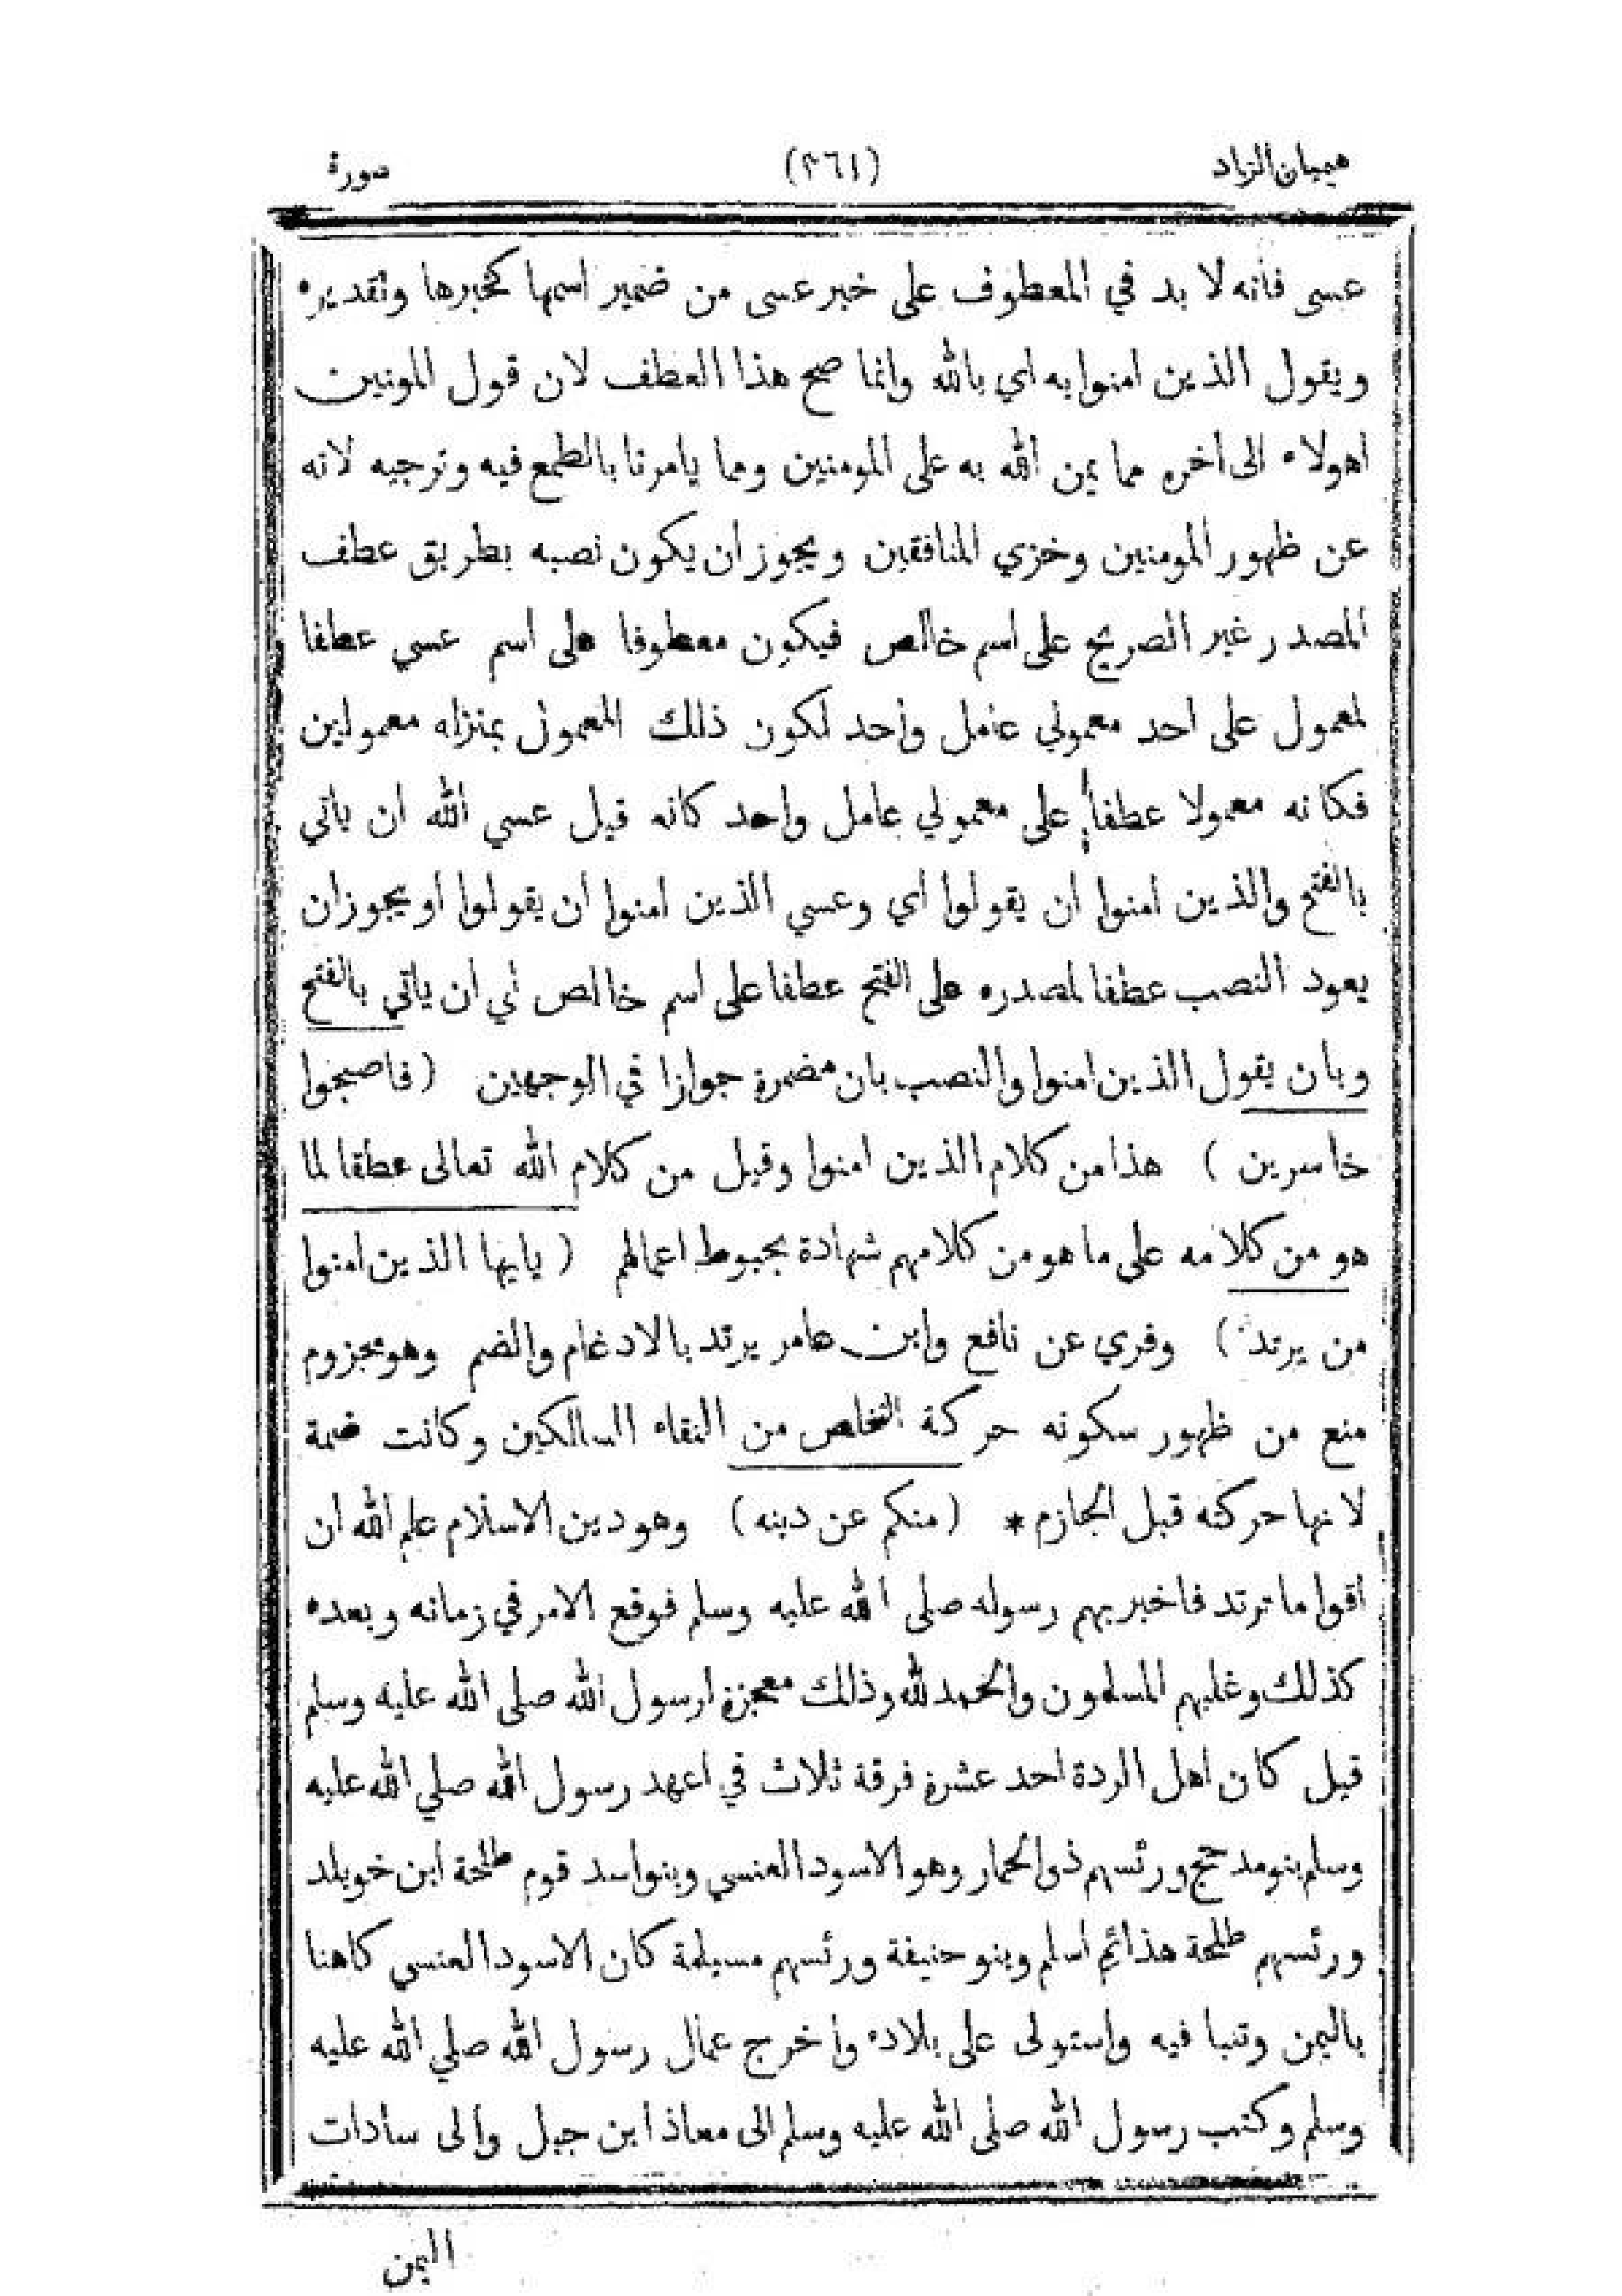 هيميان الزاد (٣٦١) سورة
عسى فانه لا بد في المعطوف على خبر عسى من ضمير اسمها كخبرها وتقديره
ويقول الذين امنوا به اي بالله وانما صح هذا العطف لان قول المونين
اهولاء الى اخره مما يمن الله به على المومنين ومما يامرنا بالطمع فيه وترجيه لانه
عن ظهور المومنين وخزي المنافقين ويجوز ان يكون نصبه بطريق عطف
المصدر غير الصريح على اسم خالص فيكون معطوفا على اسم عسي عطفا
لمعمول على احد معمولي عامل واحد لكون ذلك المعمول بمنزله معمولين
فكانه معمولا عطفا على معمولي عامل واحد كانه قيل عسي الله ان ياتي
بالفتح والذين امنوا ان يقولوا أي وعسي الذين امنوا ان يقولوا او يجوزان
يعود النصب عطفا لمصدره على الفتح عطفا على اسم خالص أي ان ياتي بالفتح
وبان يقول الذين امنوا والنصب بان مضمرة جوازا في الوجهين (فاصبحوا
خاسرين) هذا من كلام الذين امنوا وقيل من كلام الله تعالى عطفا لما
هو من كلامه على ما هو من كلامهم شهادة بحبوط اعمالهم (يايها الذين امنوا
من يرتد) وقري عن نافع وابن عامر يرتد بالادغام والضم وهو مجزوم
منع من ظهور سكونه حركة التخلص من التقاء الساكنين وكانت ضمة
لانها حركته قبل الجازم * (منكم عن دينه) وهو دين الاسلام علم الله ان
اقواما ترتد فاخبر بهم رسوله صلى الله عليه وسلم فوقع الامر في زمانه وبعده
كذلك وغلبهم المسلمون والحمد لله وذلك معجزة لرسول الله صلى الله عليه وسلم
قيل كان اهل الردة احد عشرة فرقة ثلاث في اعهد رسول الله صلي الله عليه
وسلم بنو مدحج ورئسهم ذو الحمار وهو الاسود العنسي وبنو اسد قوم طلحة ابن خويلد
ورئسهم طلحة هذا ثم اسلم وبنو حنيفة ورئسهم مسيلمة كان الاسود العنسي كاهنا
باليمن وتنبا فيه واستولى على بلاده وأخرج عمال رسول الله صلي الله عليه
وسلم وكتب رسول الله صلى الله عليه وسلم الى معاذ ابن جبل والى سادات
اليمن